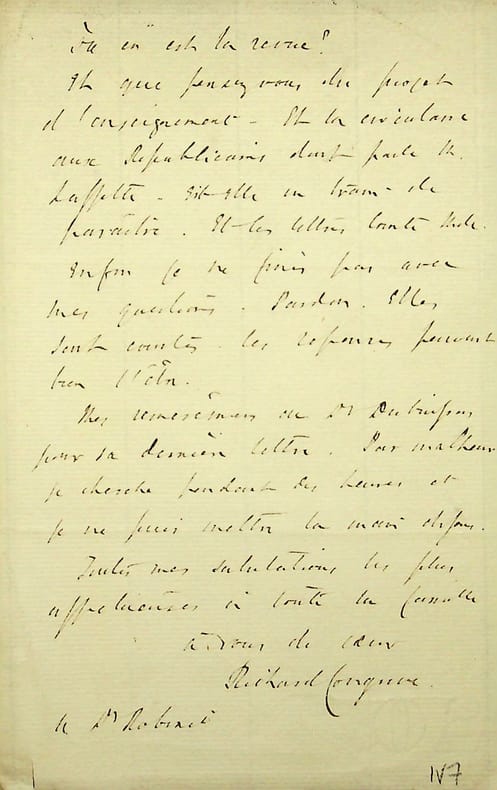 Où en est la revue?
Et que pensez vous du projet
d'enseignement - Et la circulaire
aux Républicains dont parle M.
Laffitte - Est elle en train de
paraître. Et les lettres Comte Mill.
Enfin je ne finis pas avec
mes questions. Pardon. Elles
sont courtes. les réponses peuvent
bien l'être.
Mes remerciements au Dr Dubuisson
pour sa dernière lettre. Par malheur
je cherche pendant des heures et
je ne puis mettre la main dessus.
Toutes mes salutations les plus
affectueuses à toute la famille
à vous de cœur
Richard Congreve.
Au Dr Robinet
IV7